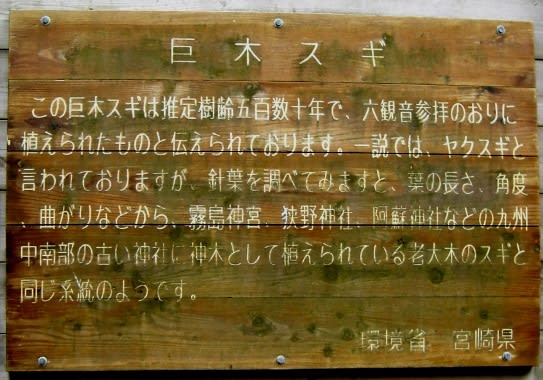 巨木スギ
この巨木スギは推定樹齢五百数十年で、六観音参拝のおりに
植えられたものと伝えられております。一説では、ヤクスギと
言われておりますが、針葉を調べてみますと、葉の長さ、角度
、曲がりなどから、霧島神宮、狭野神社、阿蘇神社などの九州
中南部の古い神社に神木として植えられている老大木のスギと
同じ系統のようです。
環境省 宮崎県